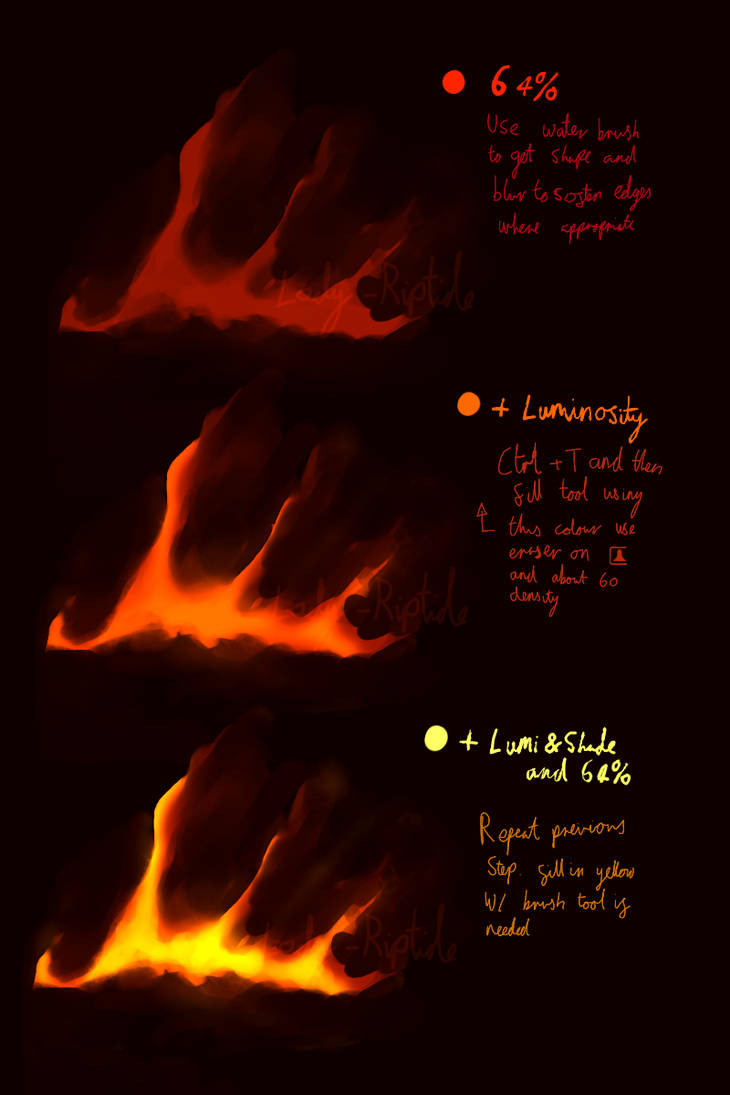 64%
Use water brush
to get shape and
blur to soften edges
where appropriate
Lady-Riptide
+ Luminosity
Ctrl + T and then
fill tool using
this colour use
eraser on
and about 60
density
-Riptide
+ Lumi & Shade
and 64%
Repeat previous
Step. fill in yellow
W/ brush tool if
needed
-Riptide